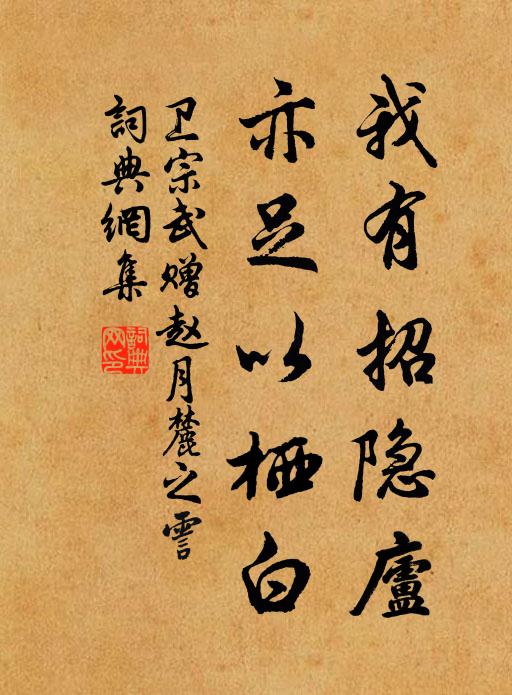 我有招隐廬
亦足以栖白
卫宗武赠赵月麓之霅
詞典網集
詞典网印